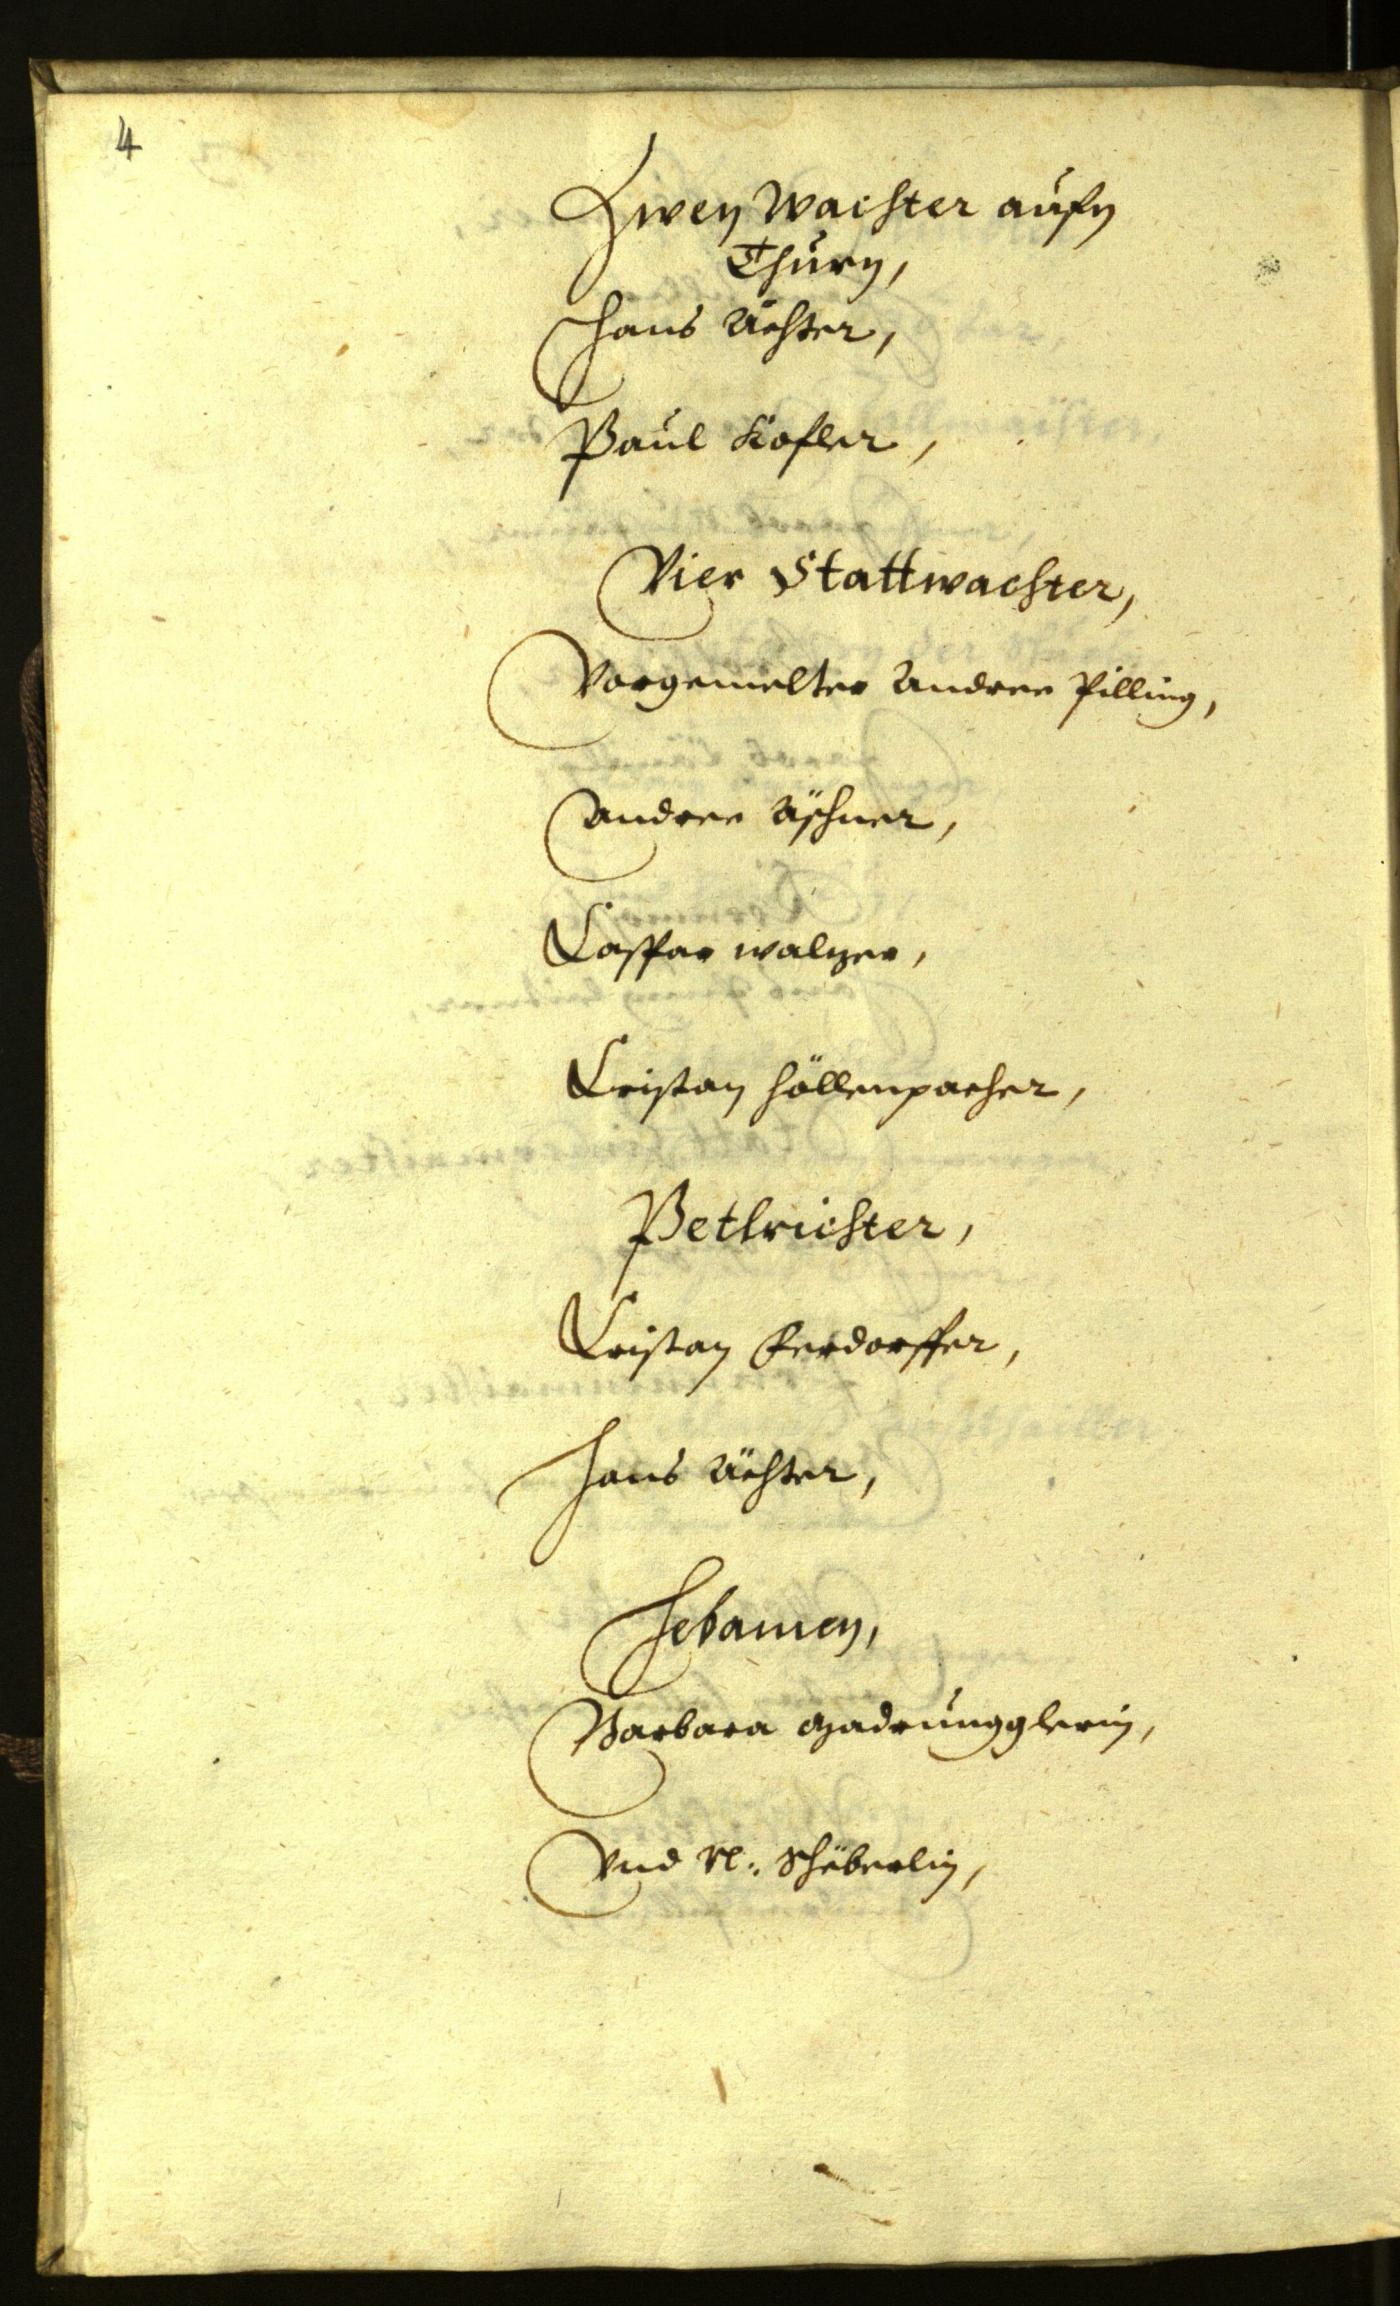 4
Zwen Wachter aufn
Thurn,
Hans Ächter,
Paul Kofler,
Vier Stattwachter,
Vorgemelter Andree Pilling,
Andree Äschner,
Caspar Walzer,
Cristan Höllenpacher,
Petlrichter,
Cristan Ferdorffer,
Hans Ächter,
Hebamen,
Barbara Madrungglerin,
Vnd N: Schëberlin,